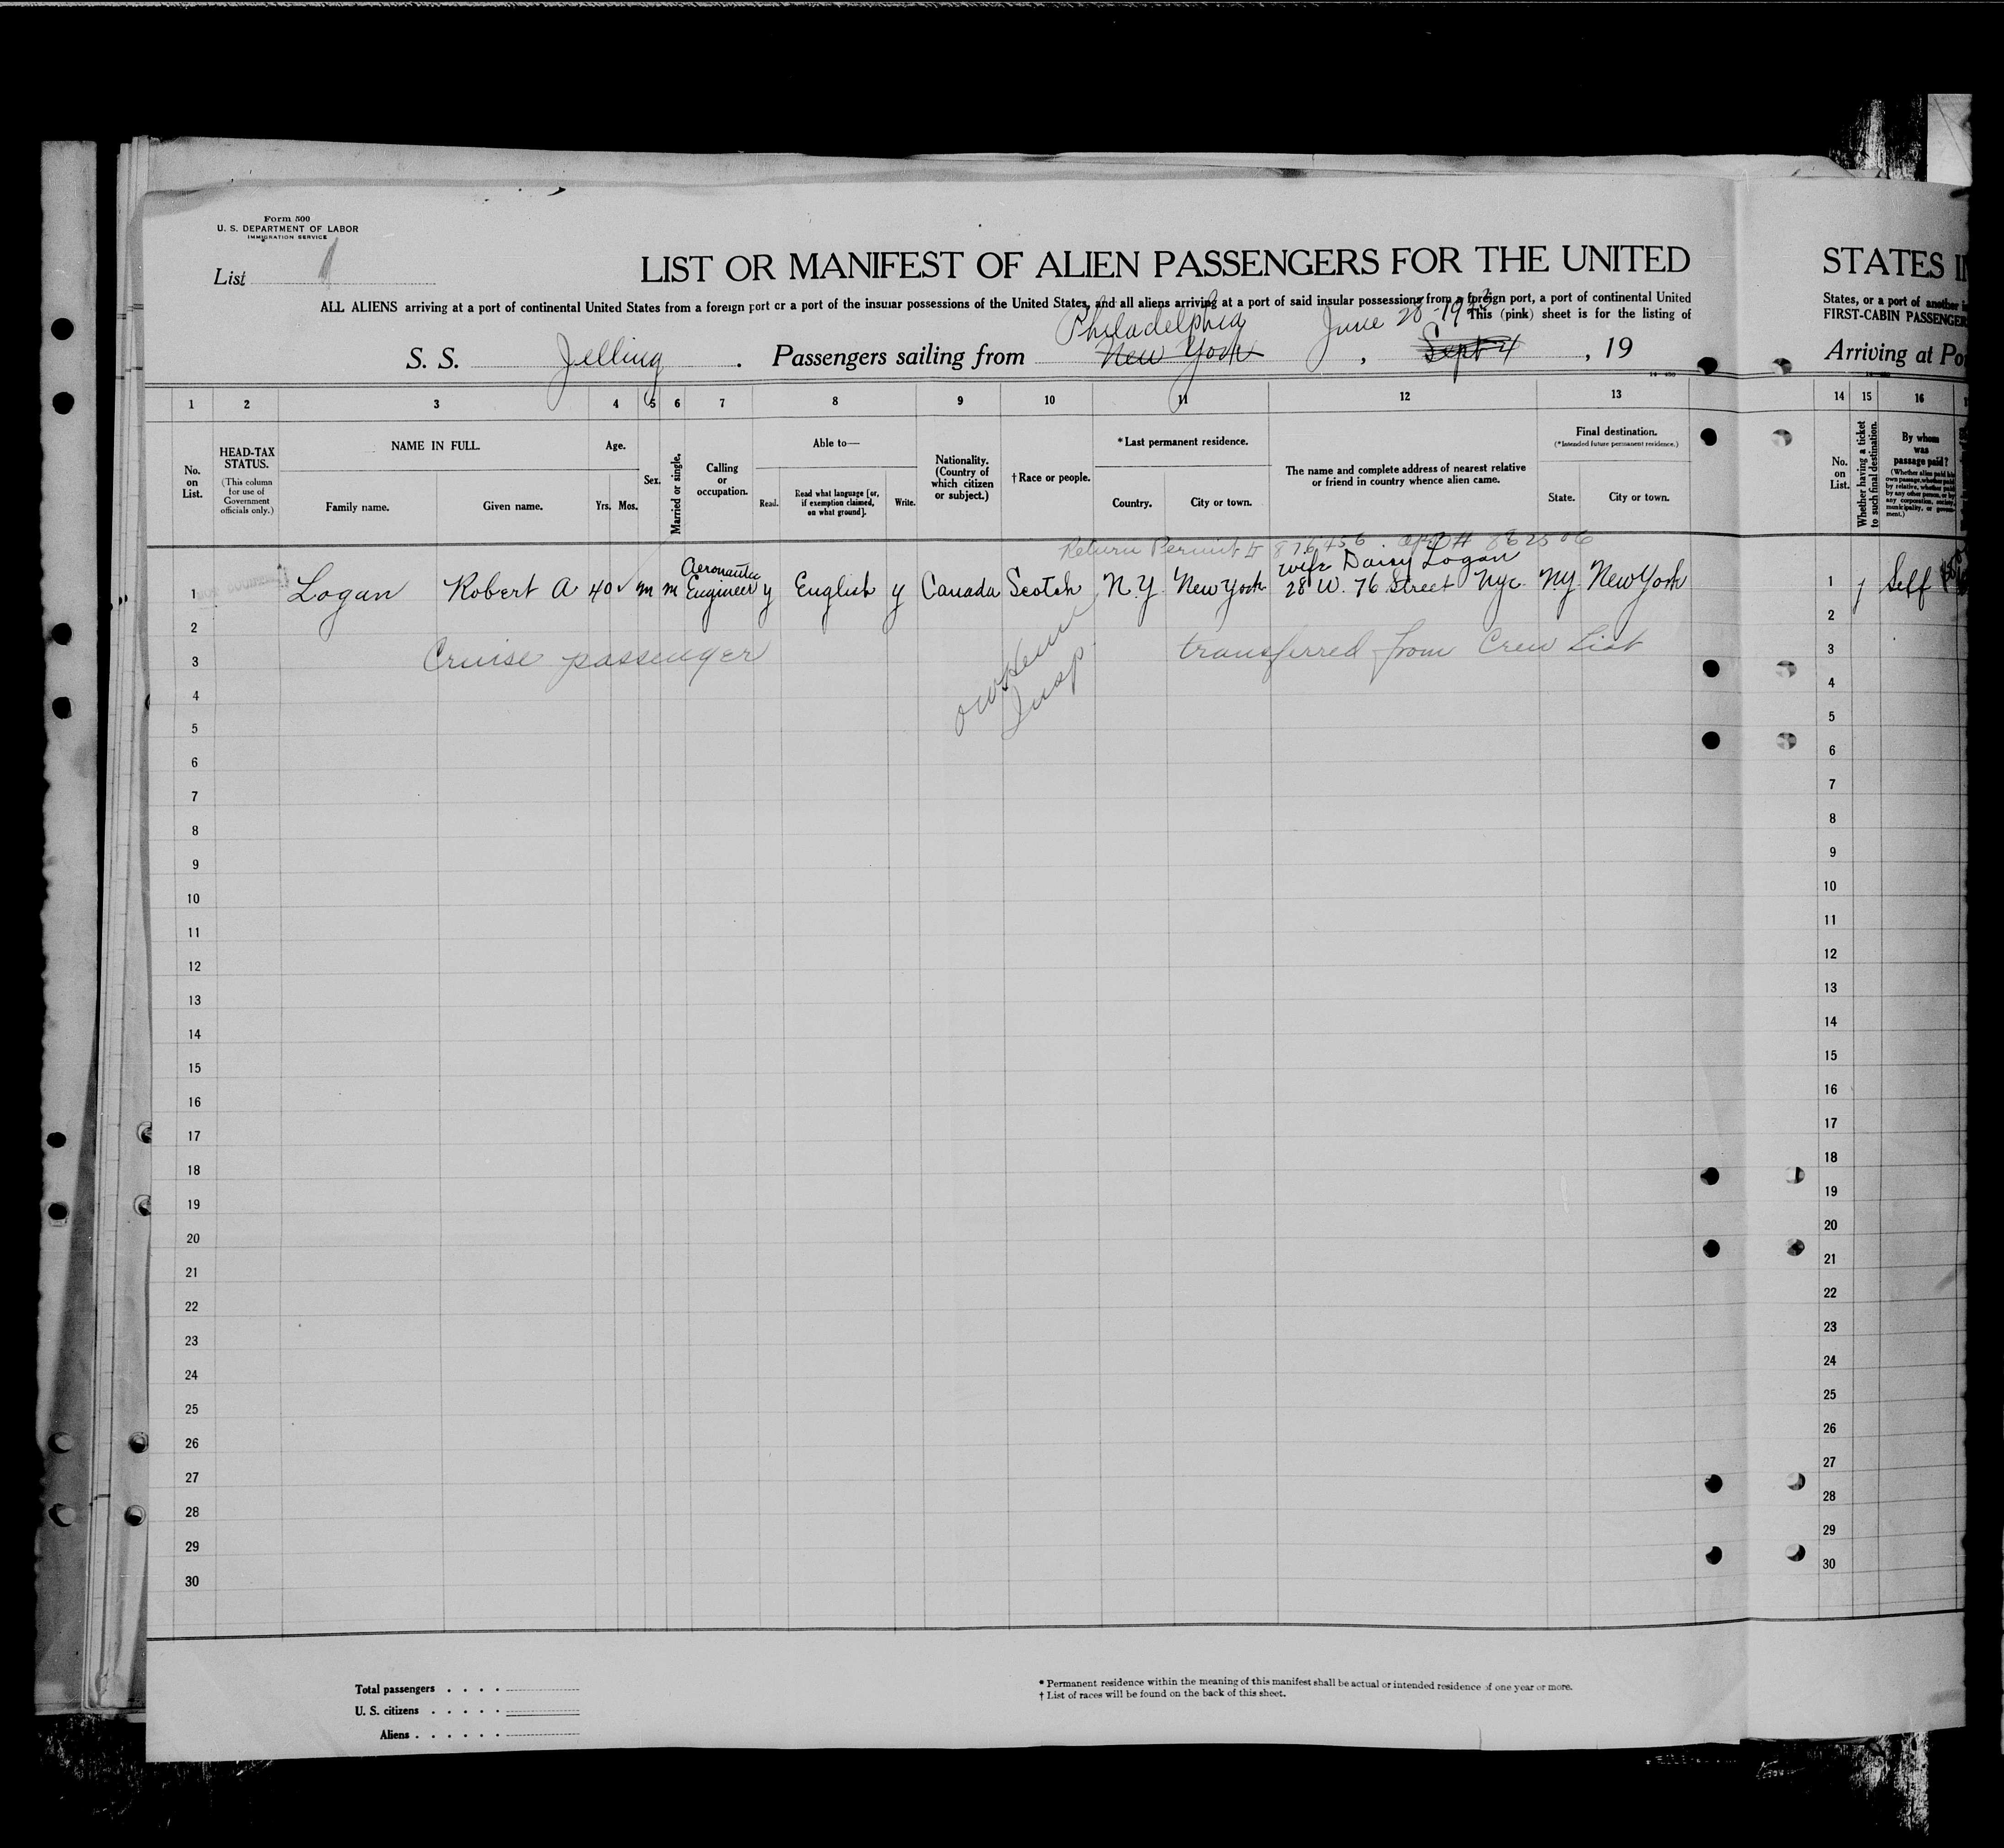 Form 500
U. S. DEPARTMENT OF LABOR
IMMIGRATION SERVICE
List 1
LIST OR MANIFEST OF ALIEN PASSENGERS FOR THE UNITED
STATES
ALL ALIENS arriving at a port of continental United States from a foreign port or a port of the insular possessions of the United States, and all aliens arriving at a port of said insular possessions from a foreign port, a port of continental United
States, or a port of another
This (pink) sheet is for the listing of
FIRST-CABIN PASSENGER
Philadelphia June 28-1933
S. S. Jelling. Passengers sailing from New York, Sept 4, 19
Arriving at Po
1 2 3 4 5 6 7 8 9 10 11 12 13
14 15 16
No. on List.
HEAD-TAX STATUS.
(This column for use of Government officials only.)
NAME IN FULL.
Family name. Given name.
Age.
Yrs. Mos.
Sex.
Married or single.
Calling or occupation.
Able to—
Read. Read what language [or, if exemption claimed, on what ground]. Write.
Nationality. (Country of which citizen or subject.)
† Race or people.
*Last permanent residence.
Country. City or town.
The name and complete address of nearest relative or friend in country whence alien came.
Final destination.
(*Intended future permanent residence.)
State. City or town.
No. on List.
Whether having a ticket to such final destination.
By whom was passage paid?
(Whether alien paid his own passage, whether paid by relative, whether paid by any other person, or by any corporation, society, municipality, or government.)
Return Permit # 876456
862506
Aeronautic wife Daisy Logan
1 Logan Robert A 40 m m Engineer y English y Canada Scotch N.Y. New York 28 W. 76 Street Nyc NY New York
1 y Self
2
Cruise passenger transferred from Crew List
3
Insp.
4
5
6
7
8
9
10
11
12
13
14
15
16
17
18
19
20
21
22
23
24
25
26
27
28
29
30
2
3
4
5
6
7
8
9
10
11
12
13
14
15
16
17
18
19
20
21
22
23
24
25
26
27
28
29
30
Total passengers . . . .
U. S. citizens . . . . .
Aliens . . . . . .
* Permanent residence within the meaning of this manifest shall be actual or intended residence of one year or more.
† List of races will be found on the back of this sheet.